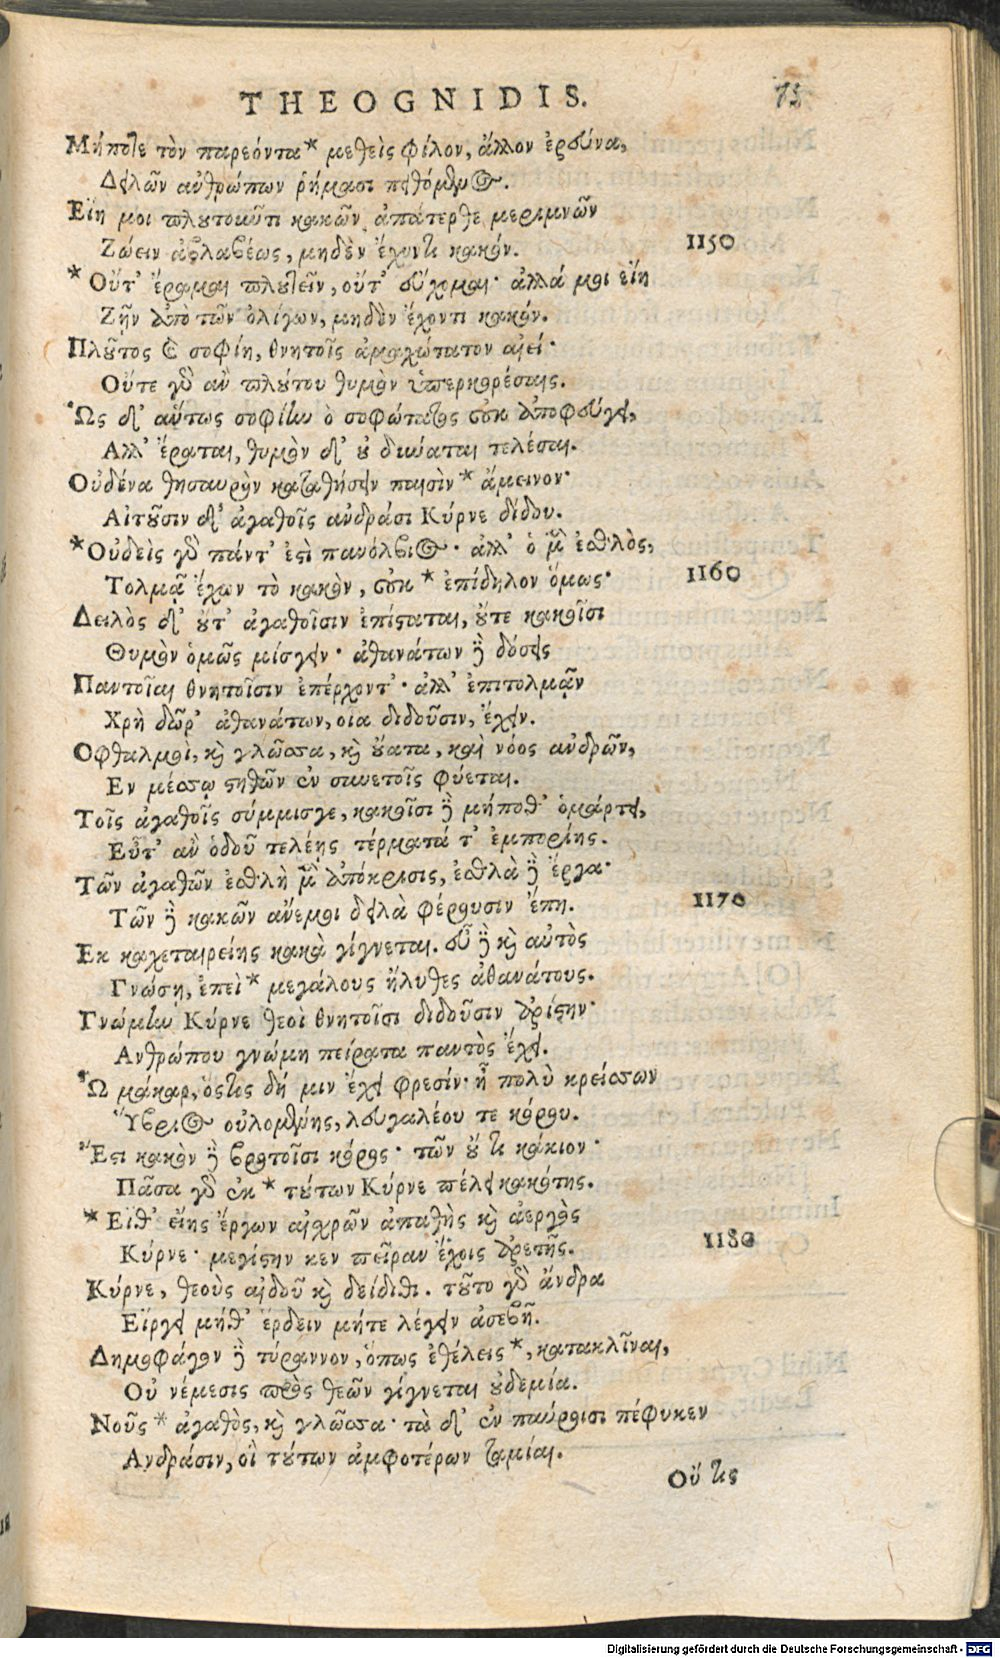 THEOGNIDIS. 73
Μήποτε τὸν παρεόντα* μεθεὶς φίλον, ἄλλον ἐρεύνα,
Δειλῶν ἀνθρώπων ῥήμασι πειθόμενος.
Εἴη μοι πλουτοῦντι κακῶν ἀπάτερθε μεριμνῶν
Ζώειν ἀβλαβέως, μηδὲν ἔχοντι κακόν. 1150
*Οὔτ' ἔραμαι πλουτεῖν, οὔτ' εὔχομαι· ἀλλά μοι εἴη
Ζῆν ἀπὸ τῶν ὀλίγων, μηδὲν ἔχοντι κακόν.
Πλοῦτος καὶ σοφίη, θνητοῖς ἀμαχώτατον αἰεί·
Οὔτε γὰρ ἂν πλούτου θυμὸν ὑπερκορέσαις.
Ὣς δ' αὔτως σοφίην ὁ σοφώτατος οὐκ ἀποφεύγει,
Ἀλλ' ἔραται, θυμὸν δ' οὐ δύναται τελέσαι.
Οὐδένα θησαυρὸν καταθήσειν παισὶν* ἄμεινον·
Αἰτοῦσιν δ' ἀγαθοῖς ἀνδράσι Κύρνε δίδου.
*Οὐδεὶς γὰρ πάντ' ἐστὶ πανόλβιος· ἀλλ' ὁ μὲν ἐσθλὸς,
Τολμᾷ ἔχων τὸ κακὸν, οὐκ* ἐπίδηλον ὅμως· 1160
Δειλὸς δ' οὔτ' ἀγαθοῖσιν ἐπίσταται, οὔτε κακοῖσι
Θυμὸν ὁμῶς μίσγειν· ἀθανάτων δὲ δόσεις
Παντοῖαι θνητοῖσιν ἐπέρχοντ'· ἀλλ' ἐπιτολμᾶν
Χρὴ δῶρ' ἀθανάτων, οἷα διδοῦσιν, ἔχειν.
Οφθαλμοὶ, καὶ γλῶσσα, καὶ οὔατα, καὶ νόος ἀνδρῶν,
Εν μέσσῳ στηθῶν ἐν συνετοῖς φύεται.
Τοῖς ἀγαθοῖς σύμμισγε, κακοῖσι δὲ μήποθ' ὁμάρτει,
Εὖτ' ἂν ὁδοῦ τελέῃς τέρματά τ' ἐμπορίης.
Τῶν ἀγαθῶν ἐσθλὴ μὲν ἀπόκρισις, ἐσθλὰ δὲ ἔργα·
Τῶν δὲ κακῶν ἄνεμοι δειλὰ φέρουσιν ἔπη. 1170
Εκ καχεταιρείης κακὰ γίγνεται. εὖ δὲ καὶ αὐτὸς
Γνώσῃ, ἐπεὶ* μεγάλους ἤλυθες ἀθανάτους.
Γνώμην Κύρνε θεοὶ θνητοῖσι διδοῦσιν ἀρίστην·
Ανθρώπου γνώμη πείρατα παντὸς ἔχει.
Ὦ μάκαρ, ὅστις δή μιν ἔχει φρεσίν· ἦ πολὺ κρείσσων
Ὕβριος οὐλομένης, λευγαλέου τε κόρου.
Ἔστι κακὸν δὲ βροτοῖσι κόρος· τῶν οὔ τι κάκιον·
Πᾶσα γὰρ ἐκ* τούτων Κύρνε πέλει κακότης.
*Εἴθ' εἴης ἔργων αἰσχρῶν ἀπαθὴς καὶ ἀεργὸς
Κύρνε· μεγίστην κεν πεῖραν ἔχοις ἀρετῆς. 1180
Κύρνε, θεοὺς αἰδοῦ καὶ δείδιθι. τοῦτο γὰρ ἄνδρα
Εἴργει μήθ' ἔρδειν μήτε λέγειν ἀσεβῆ.
Δημοφάγον δὲ τύραννον, ὅπως ἐθέλεις*, κατακλῖναι,
Οὐ νέμεσις πρὸς θεῶν γίγνεται οὐδεμία.
Νοῦς* ἀγαθὸς, καὶ γλῶσσα· τὰ δ' ἐν παύροισι πέφυκεν
Ανδράσιν, οἳ τούτων ἀμφοτέρων ταμίαι.
Οὔ τις
Digitalisierung gefördert durch die Deutsche Forschungsgemeinschaft - DFG